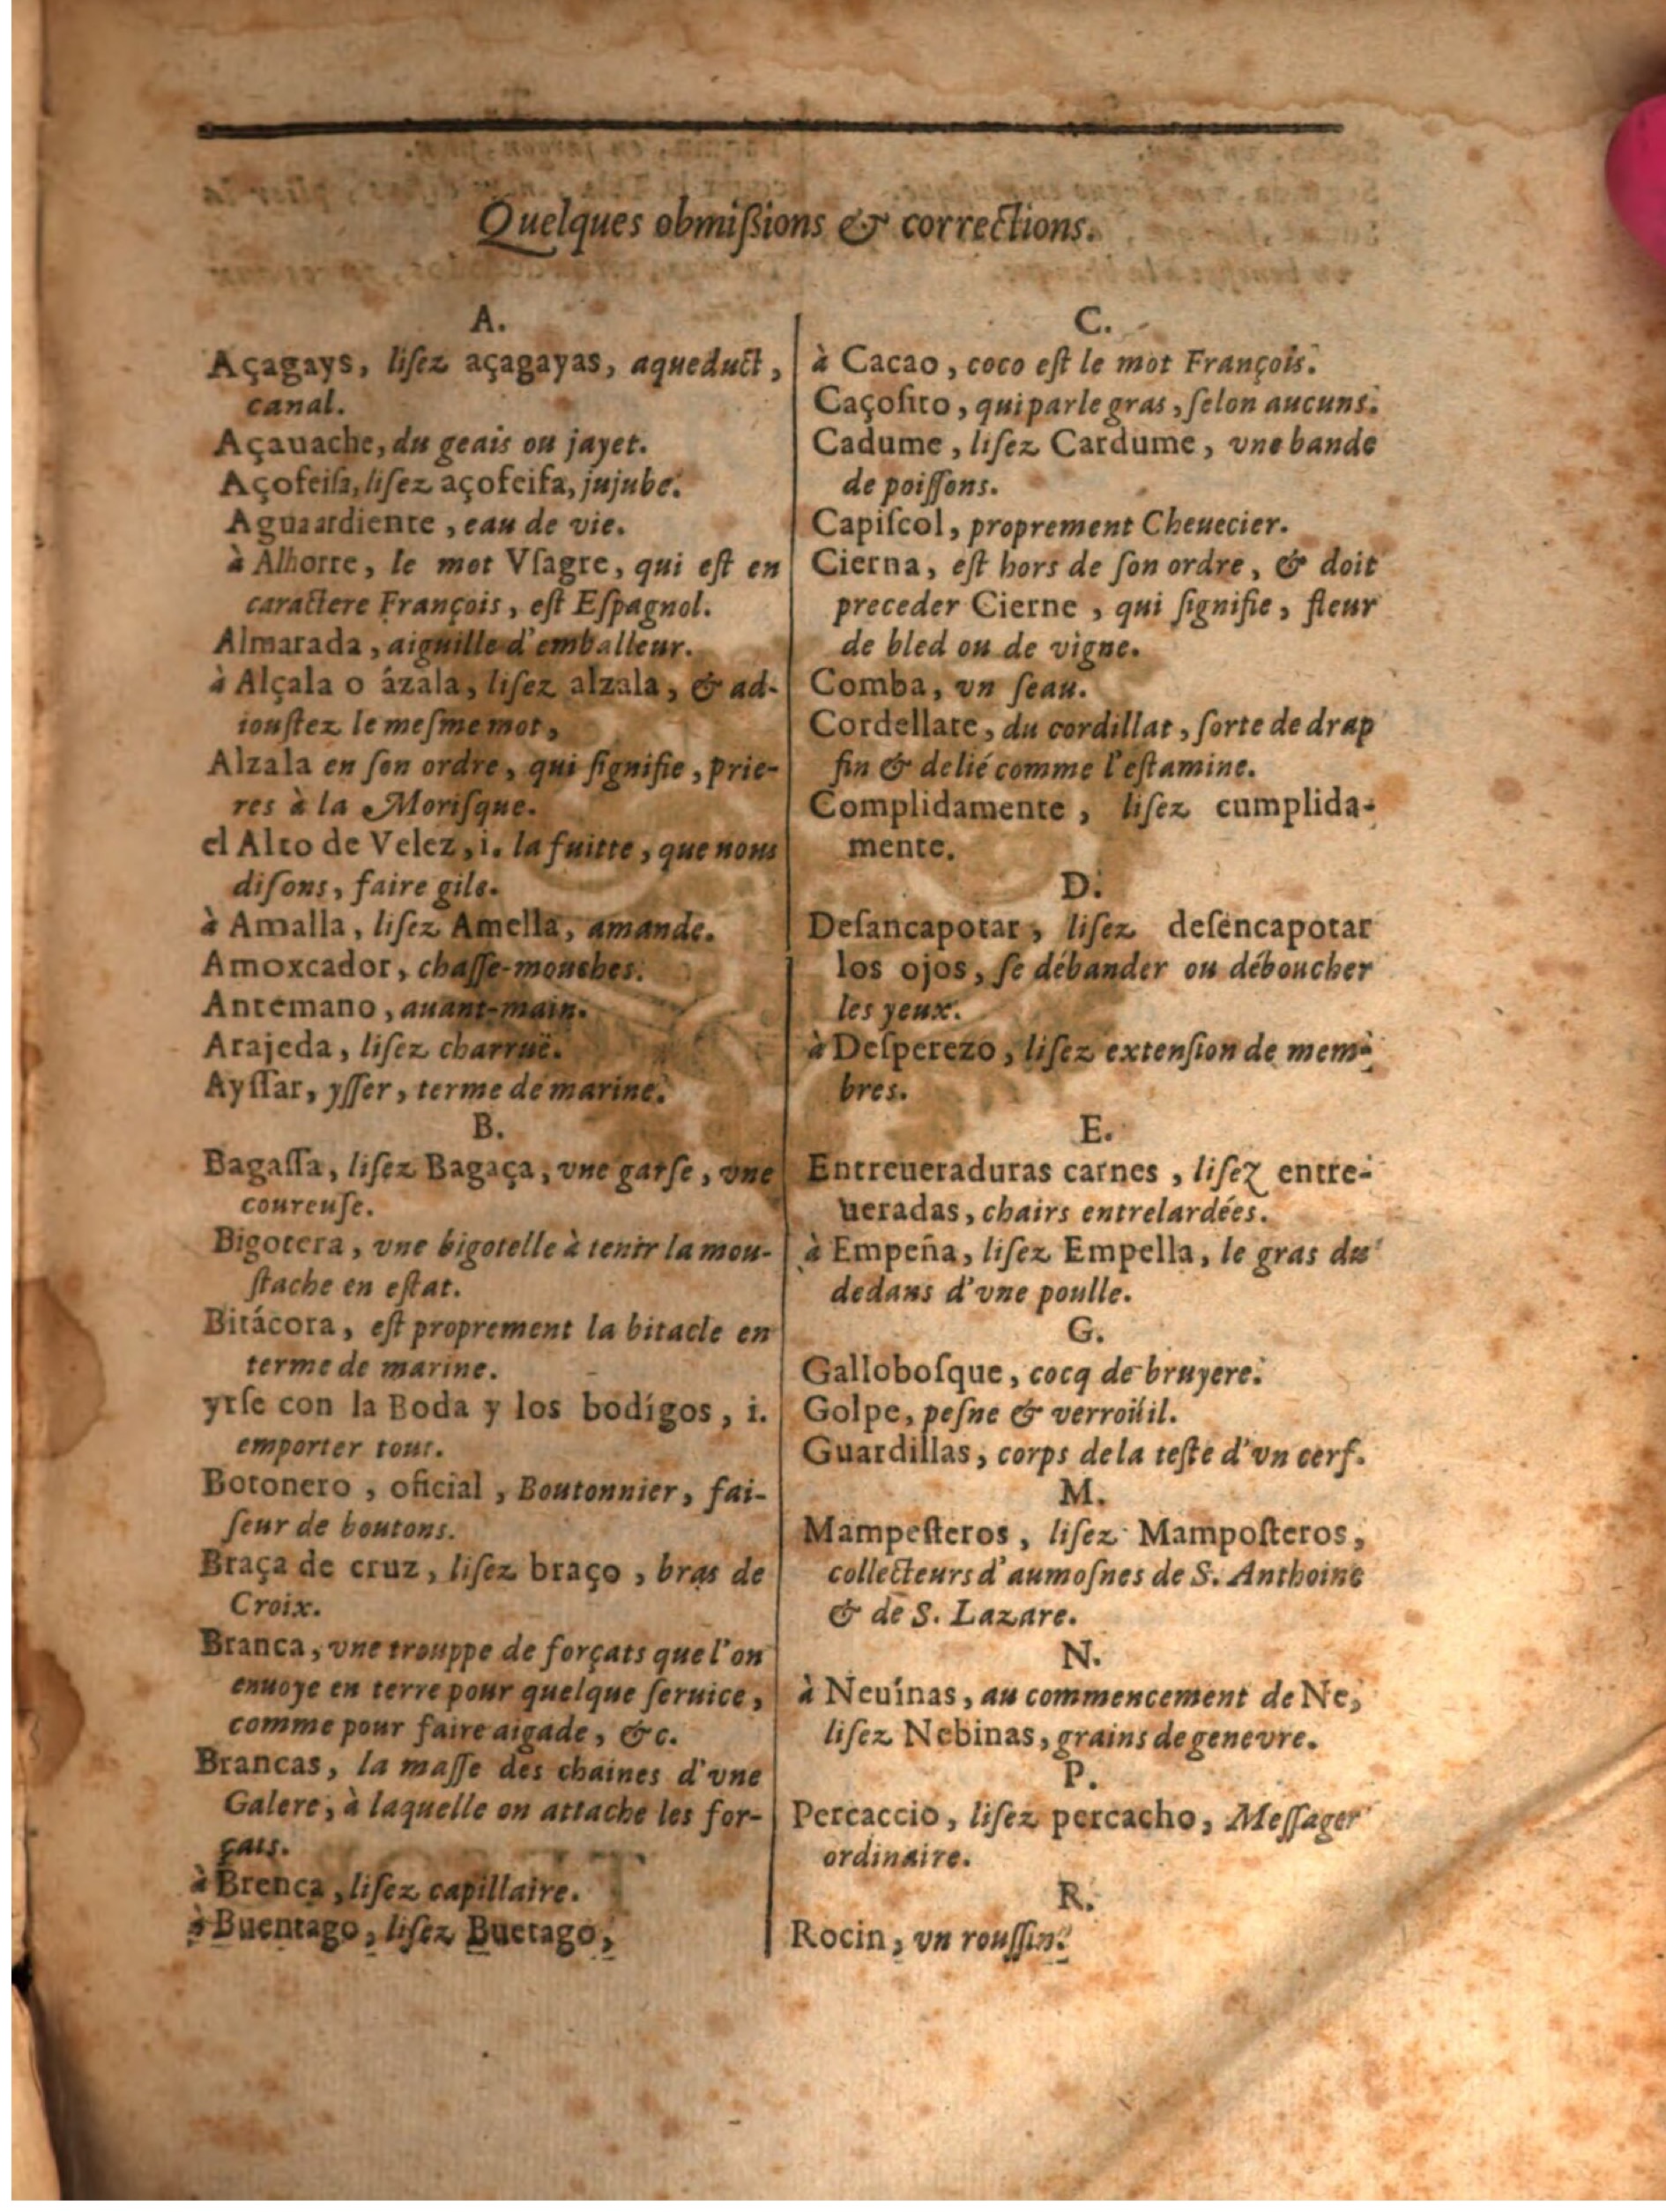 Quelques obmißions & corrections.
A.
Açagays, liſez açagayas, aqueduct,
canal.
Açauache, du geais ou jayet.
Açofeiſa, liſez açofeifa, jujube.
Aguaardiente, eau de vie.
à Alhorre, le mot Vſagre, qui eſt en
caractere François, eſt Eſpagnol.
Almarada, aiguille d'emballeur.
à Alçala o ázala, liſez alzala, & ad-
iouſtez le meſme mot,
Alzala en ſon ordre, qui ſignifie, prie-
res à la Moriſque.
el Alto de Velez, i. la fuitte, que nous
diſons, faire gile.
à Amalla, liſez Amella, amande.
Amoxcador, chaſſe-mouches.
Antemano, auant-main.
Arajeda, liſez charruë.
Ayſſar, yſſer, terme de marine.
B.
Bagaſſa, liſez Bagaça, vne garſe, vne
coureuſe.
Bigotera, vne bigotelle à tenir la mou-
ſtache en eſtat.
Bitácora, eſt proprement la bitacle en
terme de marine.
yrſe con la Boda y los bodígos, i.
emporter tout.
Botonero, oficial, Boutonnier, fai-
ſeur de boutons.
Braça de cruz, liſez braço, bras de
Croix.
Branca, vne trouppe de forçats que l'on
enuoye en terre pour quelque ſeruice,
comme pour faire aigade, &c.
Brancas, la maſſe des chaines d'vne
Galere, à laquelle on attache les for-
çats.
à Brenca, liſez capillaire.
à Buentago, liſez Buetago,
C.
à Cacao, coco eſt le mot François.
Caçoſito, qui parle gras, ſelon aucuns.
Cadume, liſez Cardume, vne bande
de poiſſons.
Capiſcol, proprement Cheuecier.
Cierna, eſt hors de ſon ordre, & doit
preceder Cierne, qui ſignifie, fleur
de bled ou de vigne.
Comba, vn ſeau.
Cordellate, du cordillat, ſorte de drap
fin & delié comme l'eſtamine.
Complidamente, liſez cumplida-
mente.
D.
Deſancapotar, liſez deſencapotar
los ojos, ſe débander ou déboucher
les yeux.
à Deſperezo, liſez extenſion de mem-
bres.
E.
Entreueraduras carnes, liſez entre-
ueradas, chairs entrelardées.
à Empeña, liſez Empella, le gras du
dedans d'vne poulle.
G.
Galloboſque, cocq de bruyere.
Golpe, peſne & verroüil.
Guardillas, corps de la teſte d'vn cerf.
M.
Mampeſteros, liſez Mampoſteros,
collecteurs d'aumoſnes de S. Anthoine
& de S. Lazare.
N.
à Neuínas, au commencement de Ne,
liſez Nebinas, grains de genevre.
P.
Percaccio, liſez percacho, Meſſager
ordinaire.
R.
Rocin, vn rouſſin.